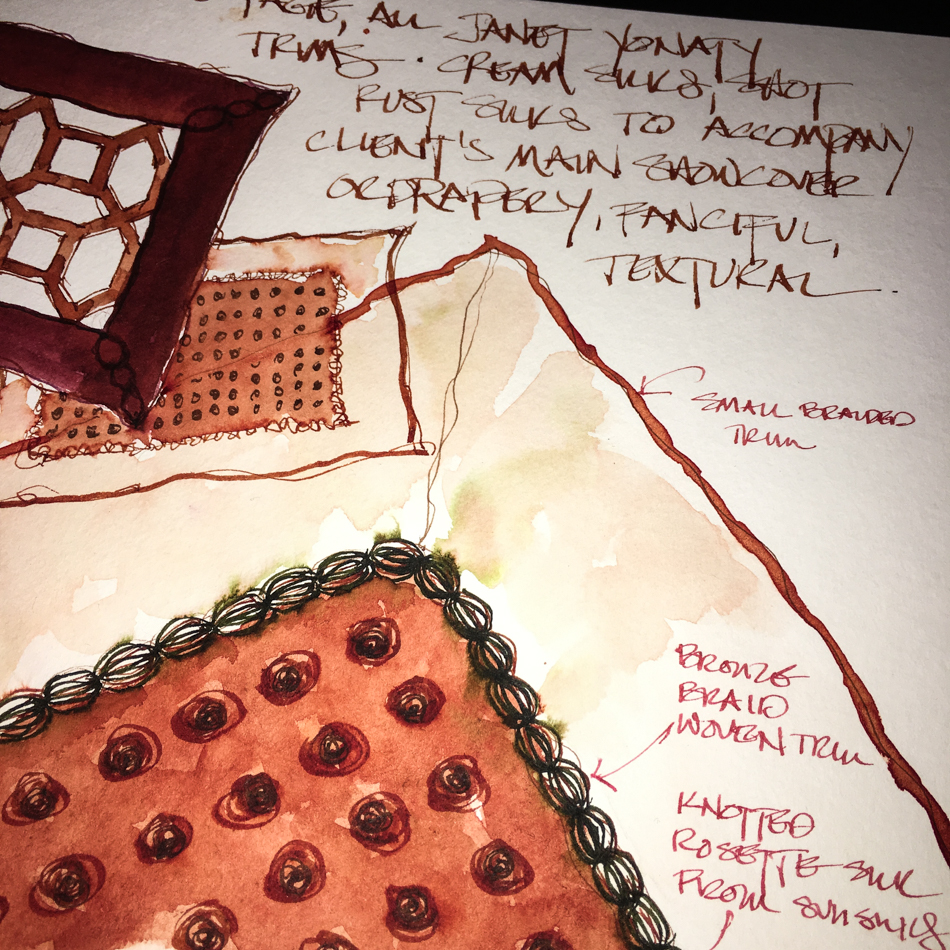 ALL JANET YONATY
TRIMS. CREAM SILKS, SHOT
RUST SILKS TO ACCOMPANY
CLIENT'S MAIN SHOWCOVER
OR DRAPERY, FANCIFUL,
TEXTURAL.
SMALL BRAIDED
TRIM
BRONZE
BRAID
WOVEN TRIM
KNOTTED
ROSETTE SILK
FROM